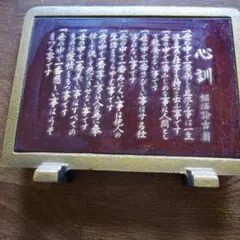 心訓
福澤諭吉翁
一世の中で一番楽しく立派な事は一生
涯を貫く仕事を持つ事です
一世の中で一番みじめな事は人間と
して教養のない事です
一世の中で一番さびしい事はする仕
事のない事です
一世の中で一番みにくい事は他人の
生活をうらやむ事です
一世の中で一番尊い事は人の為に奉
仕して決して恩にきせない事です
一世の中で一番美しい事はすべての
ものに愛情をもつ事です
一世の中で一番悲しい事はうそ
をつく事です